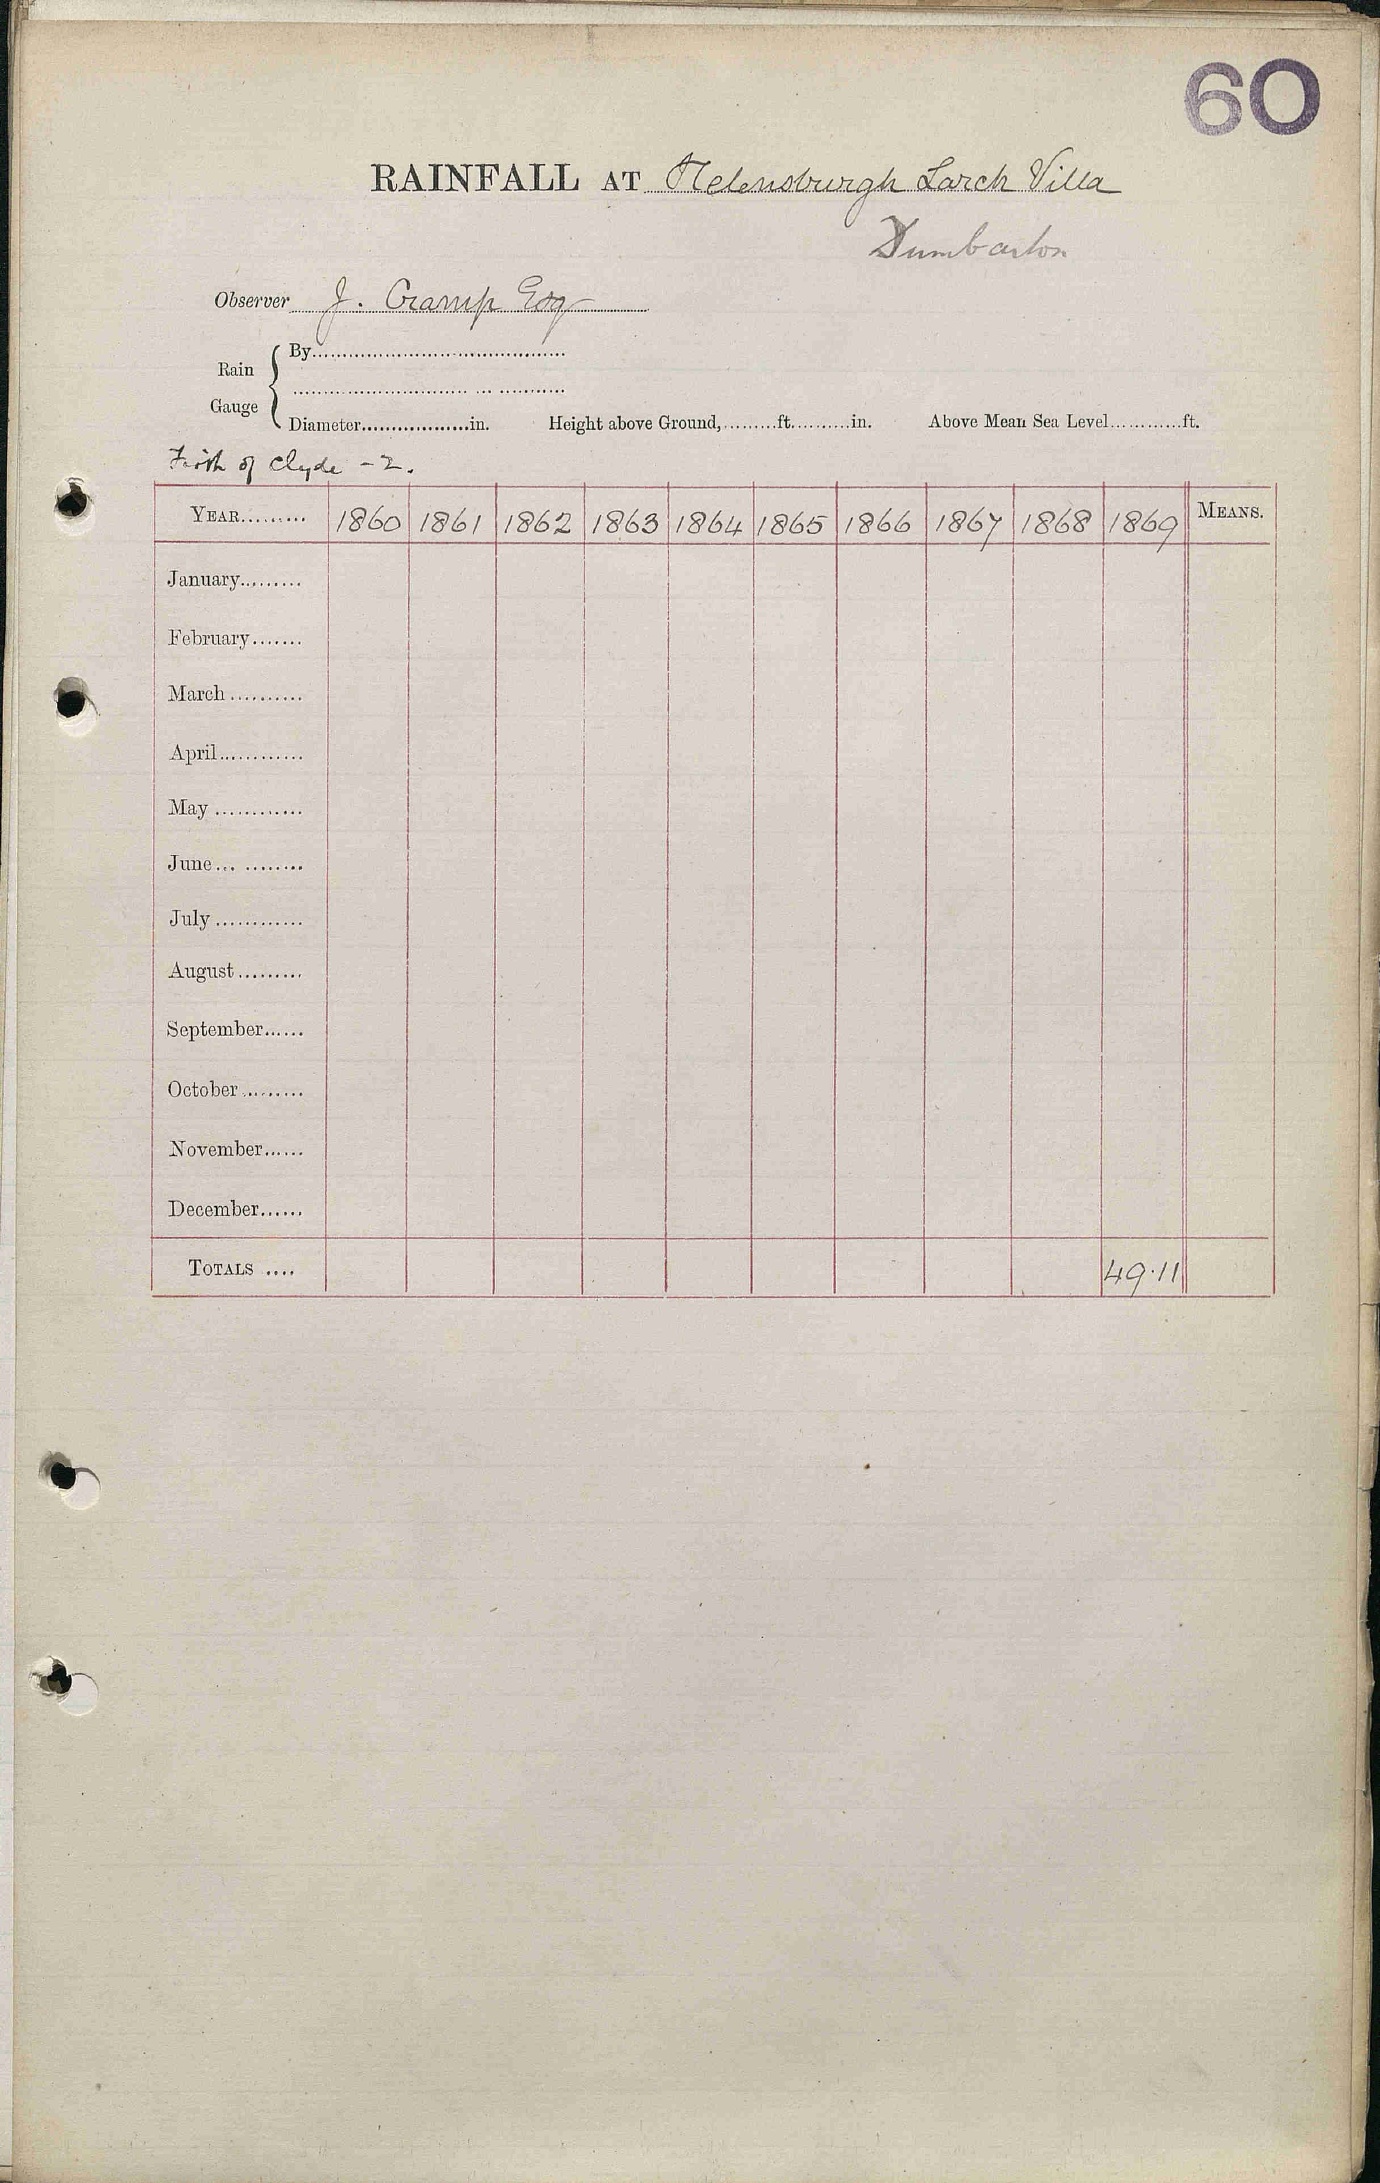 60
RAINFALL AT Helensburgh Larch Villa
Dumbarton
Observer J. Cramp Esq
Rain Gauge
By
Diameter in. Height above Ground, ft. in. Above Mean Sea Level ft.
Firth of Clyde - 2.
YEAR 1860 1861 1862 1863 1864 1865 1866 1867 1868 1869 MEANS.
January
February
March
April
May
June
July
August
September
October
November
December
TOTALS 49.11